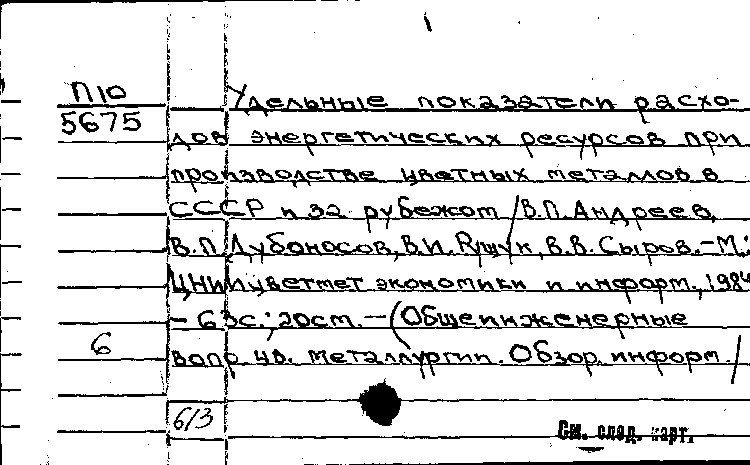 П10
5675
Удельные показатели расхо-
дов энергетических ресурсов при
производстве цветных металлов в
СССР и за рубежом / В.П. Андреев,
В.П. Дубоносов, В.И. Ящук, В.В. Сыров. - М.:
ЦНИИцветмет экономики и информ., 1984
- 63с.; 20см. - (Общеинженерные
6
вопр. цв. металлургии. Обзор. информ. /
6/3
См. след. карт.